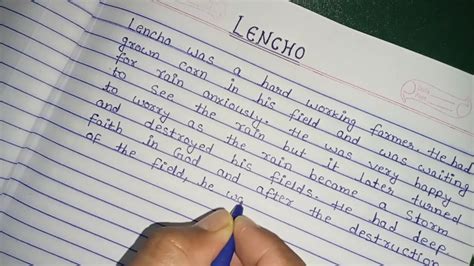 LENCHO
Lencho was a hard working farmer. He had
grown corn in his field and was waiting
for rain anxiously. He was very happy
to see the rain but it later turned
to worry as the rain became a storm
and destroyed his fields. He had deep
faith in God and after the destruction
of the field, he wa